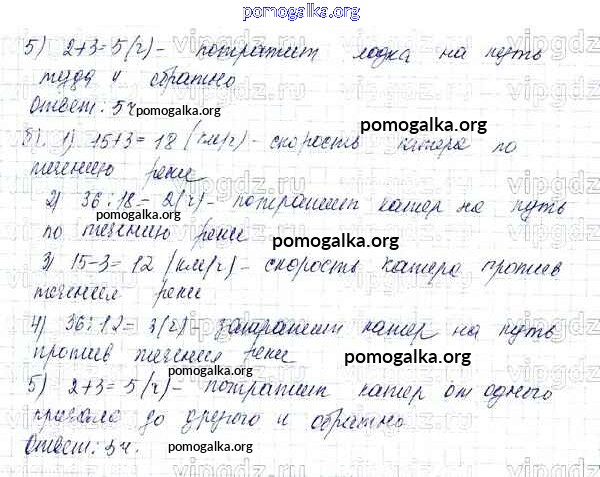 pomogalka.org
5) 2+3=5(ч)- потратит лодка на путь
туда и обратно
Ответ: 5ч pomogalka.org
б) 1) 15+3=18 (км/ч)-скорость катера по
pomogalka.org
течению реки
2) 36:18=2(ч)- потратит катер на путь
pomogalka.org
по течению реки pomogalka.org
3) 15-3=12 (км/ч)-скорость катера против
течения реки
4) 36:12=3(ч)- затратит катер на путь
против течения реки pomogalka.org
5) 2+3=5(ч)- потратит катер от одного
причала до другого и обратно
pomogalka.org
Ответ: 5ч. pomogalka.org
vipgdz.ru